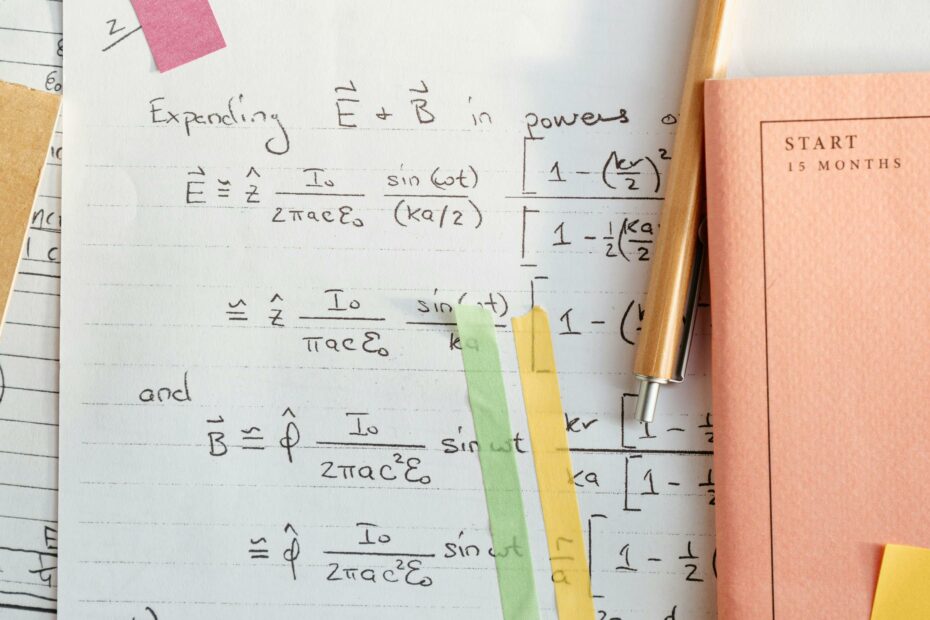 2
Expanding E⃗ + B⃗ in powers
E⃗ ≅ ẑ I₀/(2πacε₀) sin(ωt)/(ka/2) [1 - (kr/2)²
[1 - ½(ka/2
≅ ẑ I₀/(πacε₀) sin(ωt)/ka [1 - (
and
B⃗ ≅ φ̂ I₀/(2πac²ε₀) sin ωt kr [1 - ½
ka [1 - ½
≅ φ̂ I₀/(2πac²ε₀) sin ωt r/a [1 - ½(
START
15 MONTHS